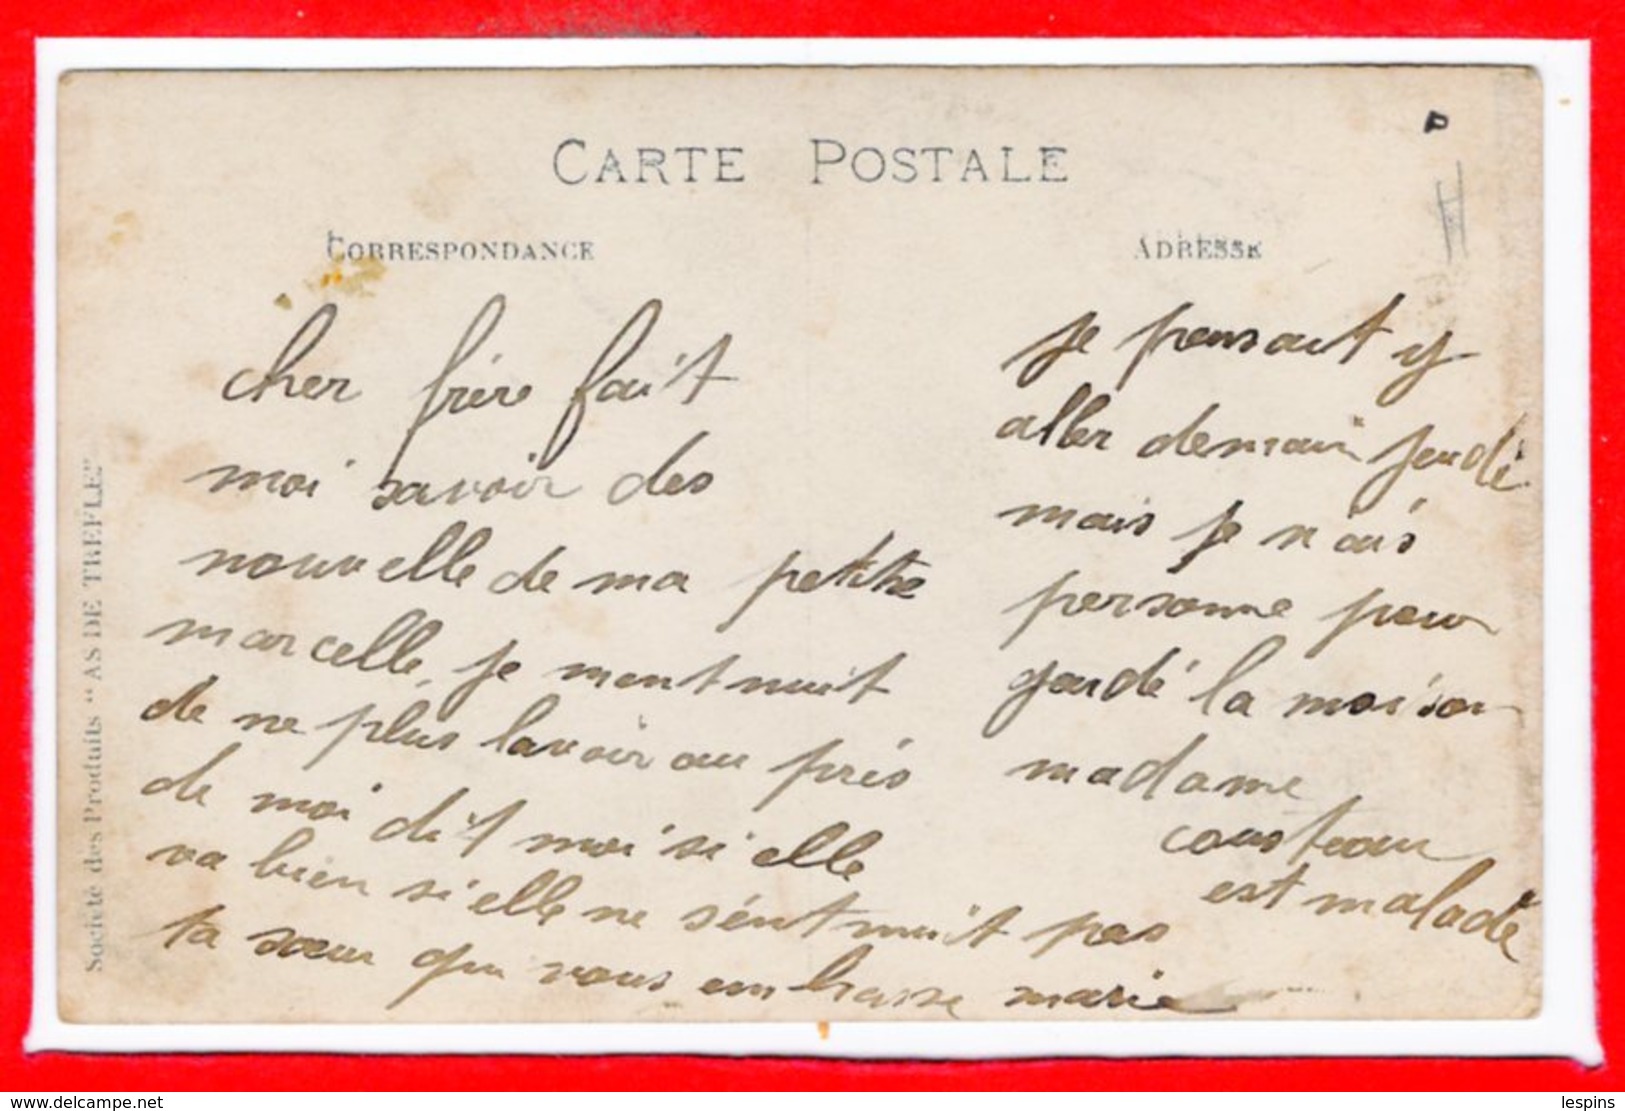 CARTE POSTALE
CORRESPONDANCE
cher frère fait
moi savoir des
nouvelle de ma petite
marcelle, je mentnuit
de ne plus lavoir au près
de moi dit moi si elle
va bien si elle ne s'éntnuit pas
ta sœur qui vous embrasse marie
ADRESSE
je pensait y
aller demain jeudi
mais je n'ais
personne pour
gardé la maison
madame
cousteau
est malade
Société des Produits "AS DE TREFLE"
delcampe.net
lespins